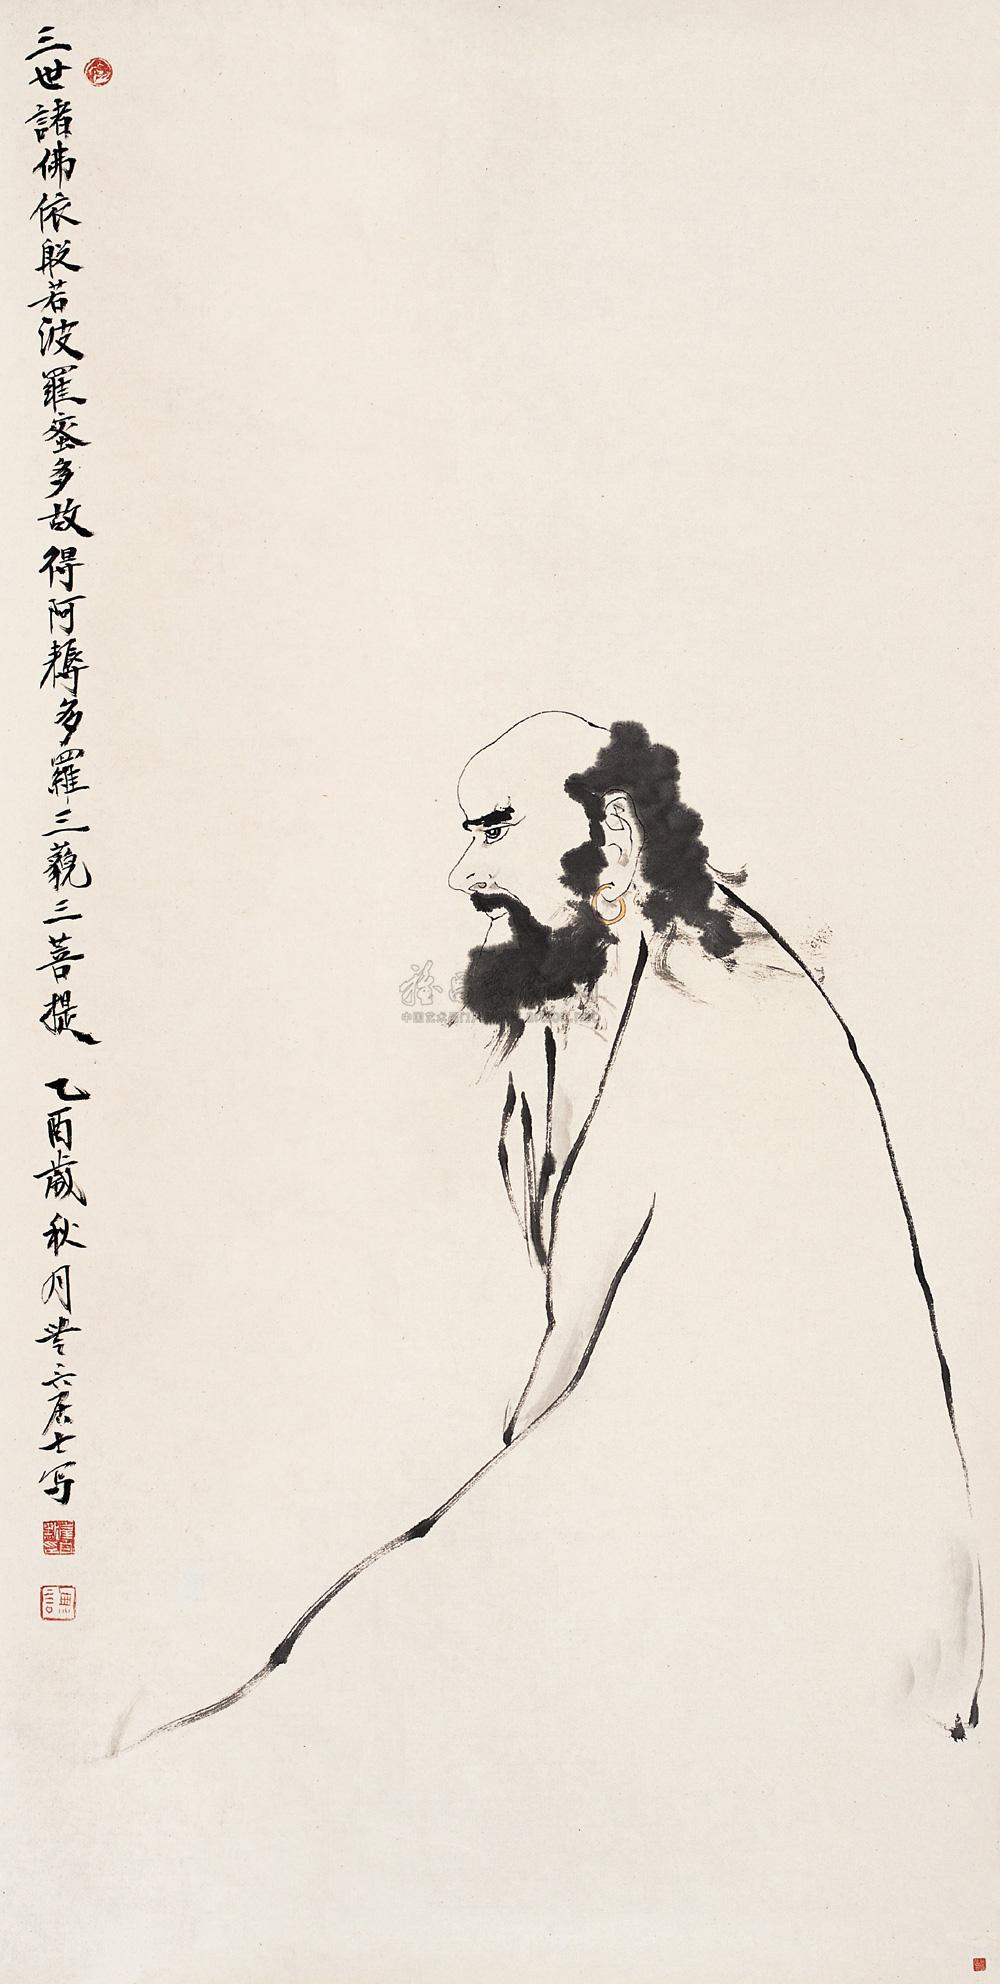 三世諸佛依般若波羅蜜多故得阿耨多羅三藐三菩提 乙酉歲秋月 六居士写